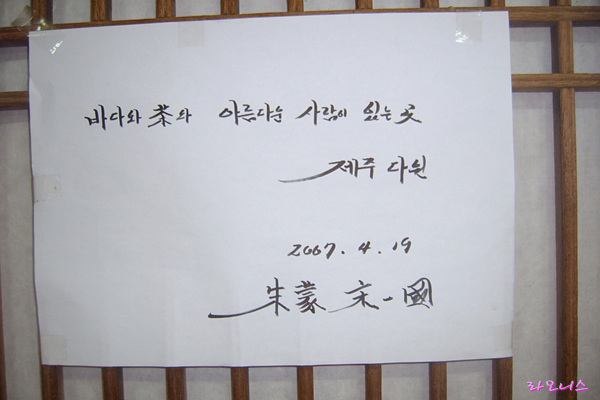 바다와 茶와 아름다운 사람이 있는 곳
제주 다원
2007. 4. 19
朱蒙 宋一國
라모니스